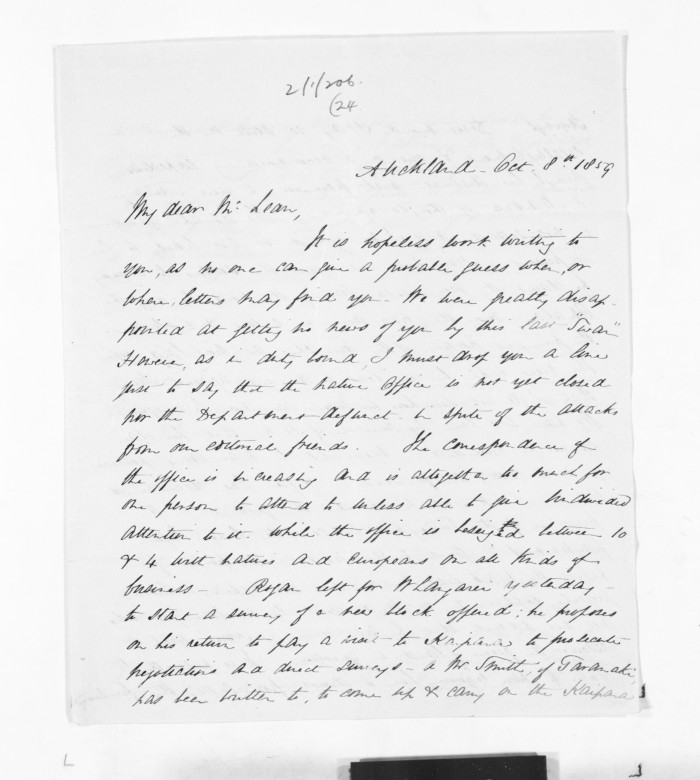 2/1/206.
(24
Auckland - Oct. 8th 1859
My dear Mc Lean,
It is hopeless work writing to
you, as no one can give a probable guess when, or
where, letters may find you - We were greatly disap-
pointed at getting no news of you by this last "Swan"
However, as in duty bound, I must drop you a line
just to say that the native office is not yet closed
nor the Department defunct in spite of the attacks
from our editorial friends. The correspondence of
the office is increasing and is altogether too much for
one person to attend to unless able to give undivided
attention to it. While the office is beseiged between 10
& 4 with natives and Europeans on all kinds of
business - Rogan left for Whangarei yesterday -
to start a survey of a new block offered: he proposes
on his return to pay a visit to Kaipara to prosecute
negotiations and direct surveys - a Mr Smith, of Taranaki,
has been written to, to come up & carry on the Kaipara